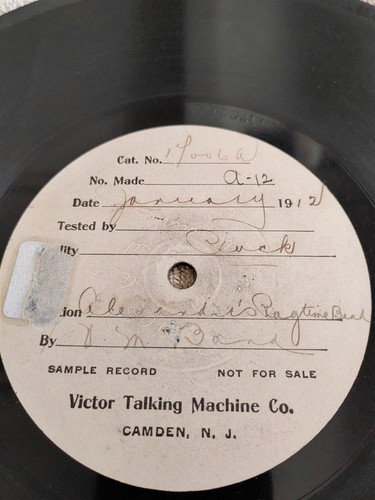 Cat. No. 17006A
No. Made A-12
Date January 1912
Tested by
lity
ion Alexander's Ragtime Band
By V M Band
SAMPLE RECORD NOT FOR SALE
Victor Talking Machine Co.
CAMDEN, N. J.